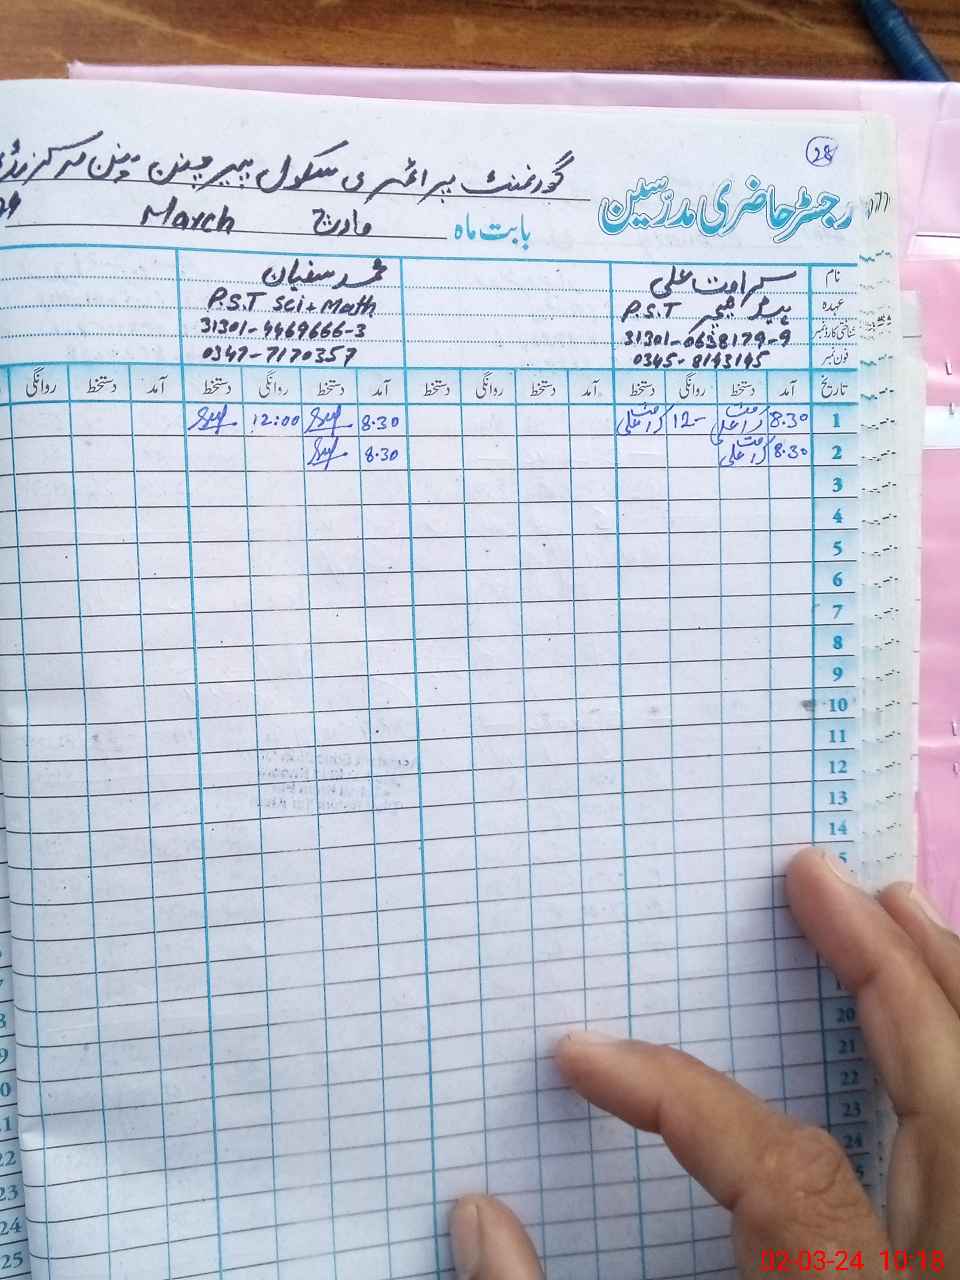 28
گورنمنٹ پرائمری سکول پیر چنن پنن مرکز
رجسٹر حاضری مدرسین
بابت ماہ مارچ March
نام کرامت علی محمد سفیان
عہدہ ہیڈ ٹیچر P.S.T P.S.T Sci+Math
شناختی کارڈ نمبر 31301-0638179-9 31301-4469666-3
فون نمبر 0345-8193195 0347-7170357
تاریخ آمد دستخط روانگی دستخط آمد دستخط روانگی دستخط آمد دستخط روانگی دستخط آمد دستخط روانگی
1 8.30 کرامت علی 12- کرامت علی 8.30 12:00
2 8.30 کرامت علی 8.30
3
4
5
6
7
8
9
10
11
12
13
14
20
21
22
23
24
22
23
24
25
02-03-24 10:18